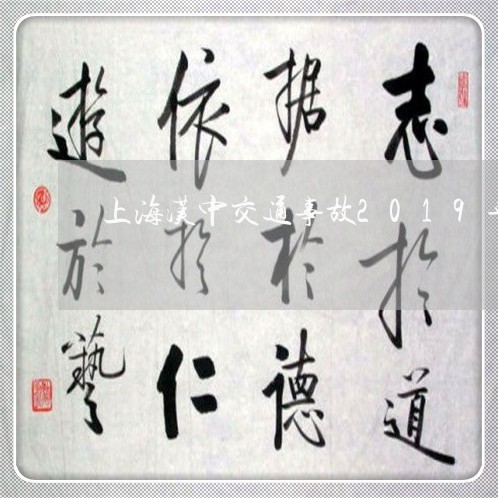 志於道
据於德
依於仁
遊於藝
上海漢中交通事故2019